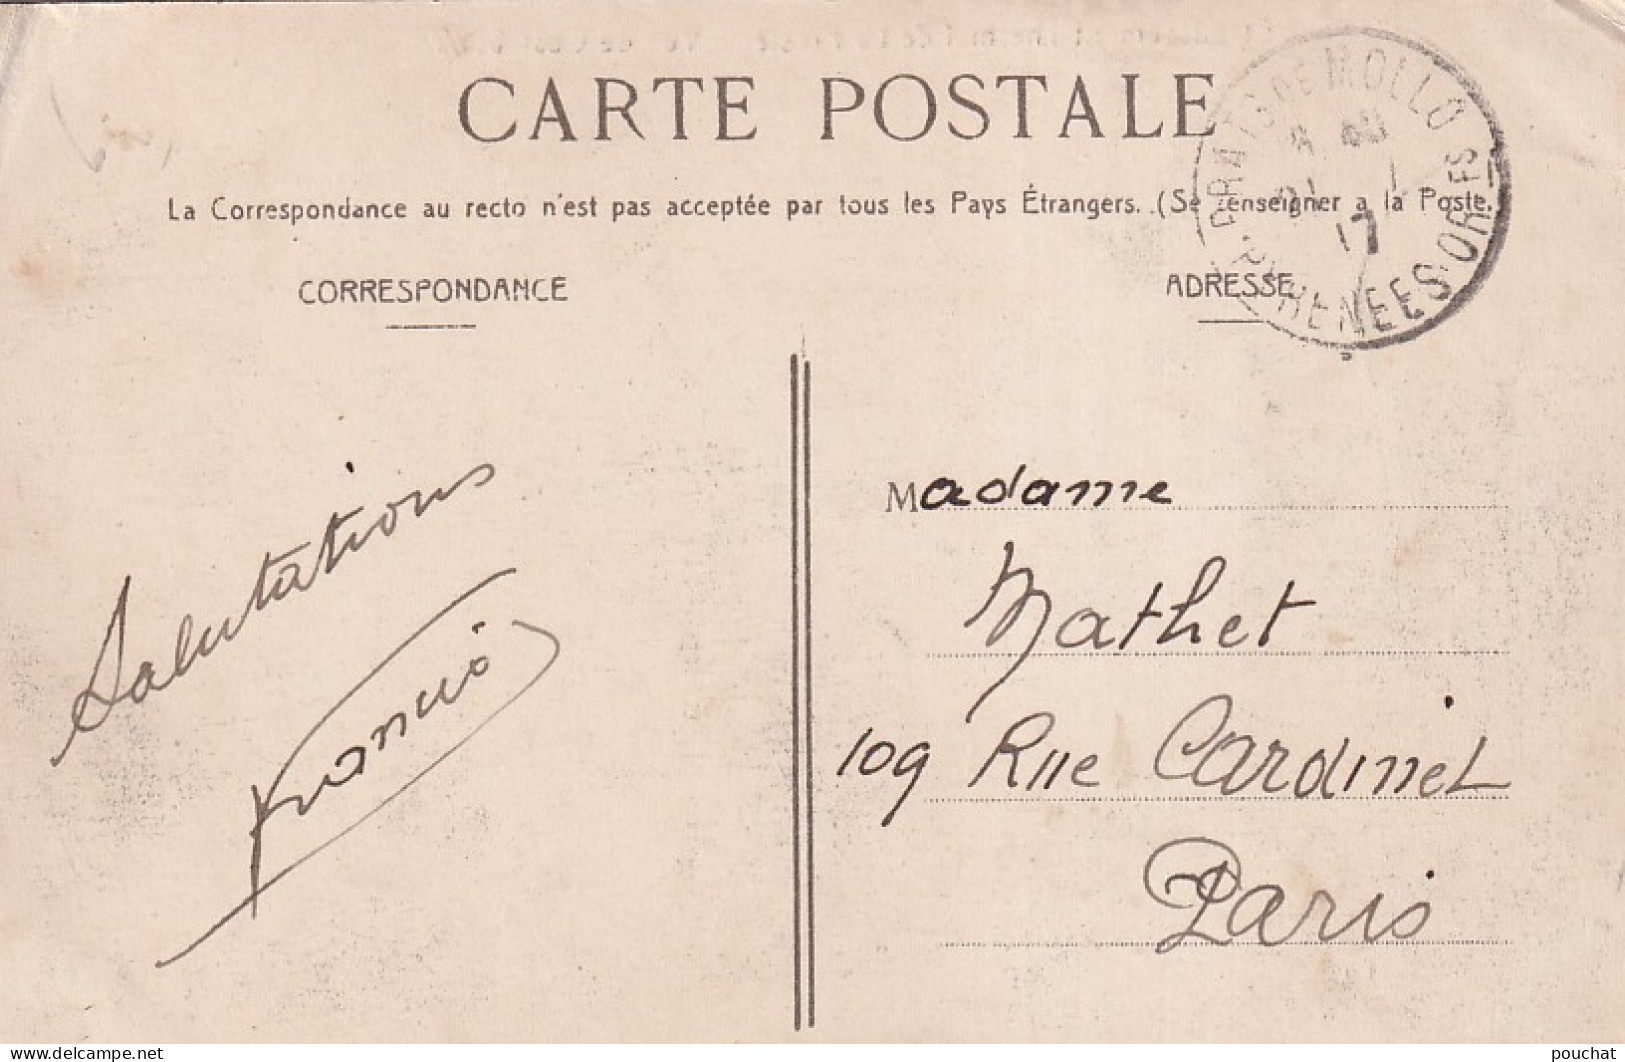 CARTE POSTALE
La Correspondance au recto n'est pas acceptée par tous les Pays Étrangers. (Se renseigner a la Poste.)
PRATS DE MOLLO
17
PYRENEES-ORLES
CORRESPONDANCE
ADRESSE
Salutations
Francis
Madame
Mathet
109 Rue Cardinet
Paris
delcampe.net
pouchat